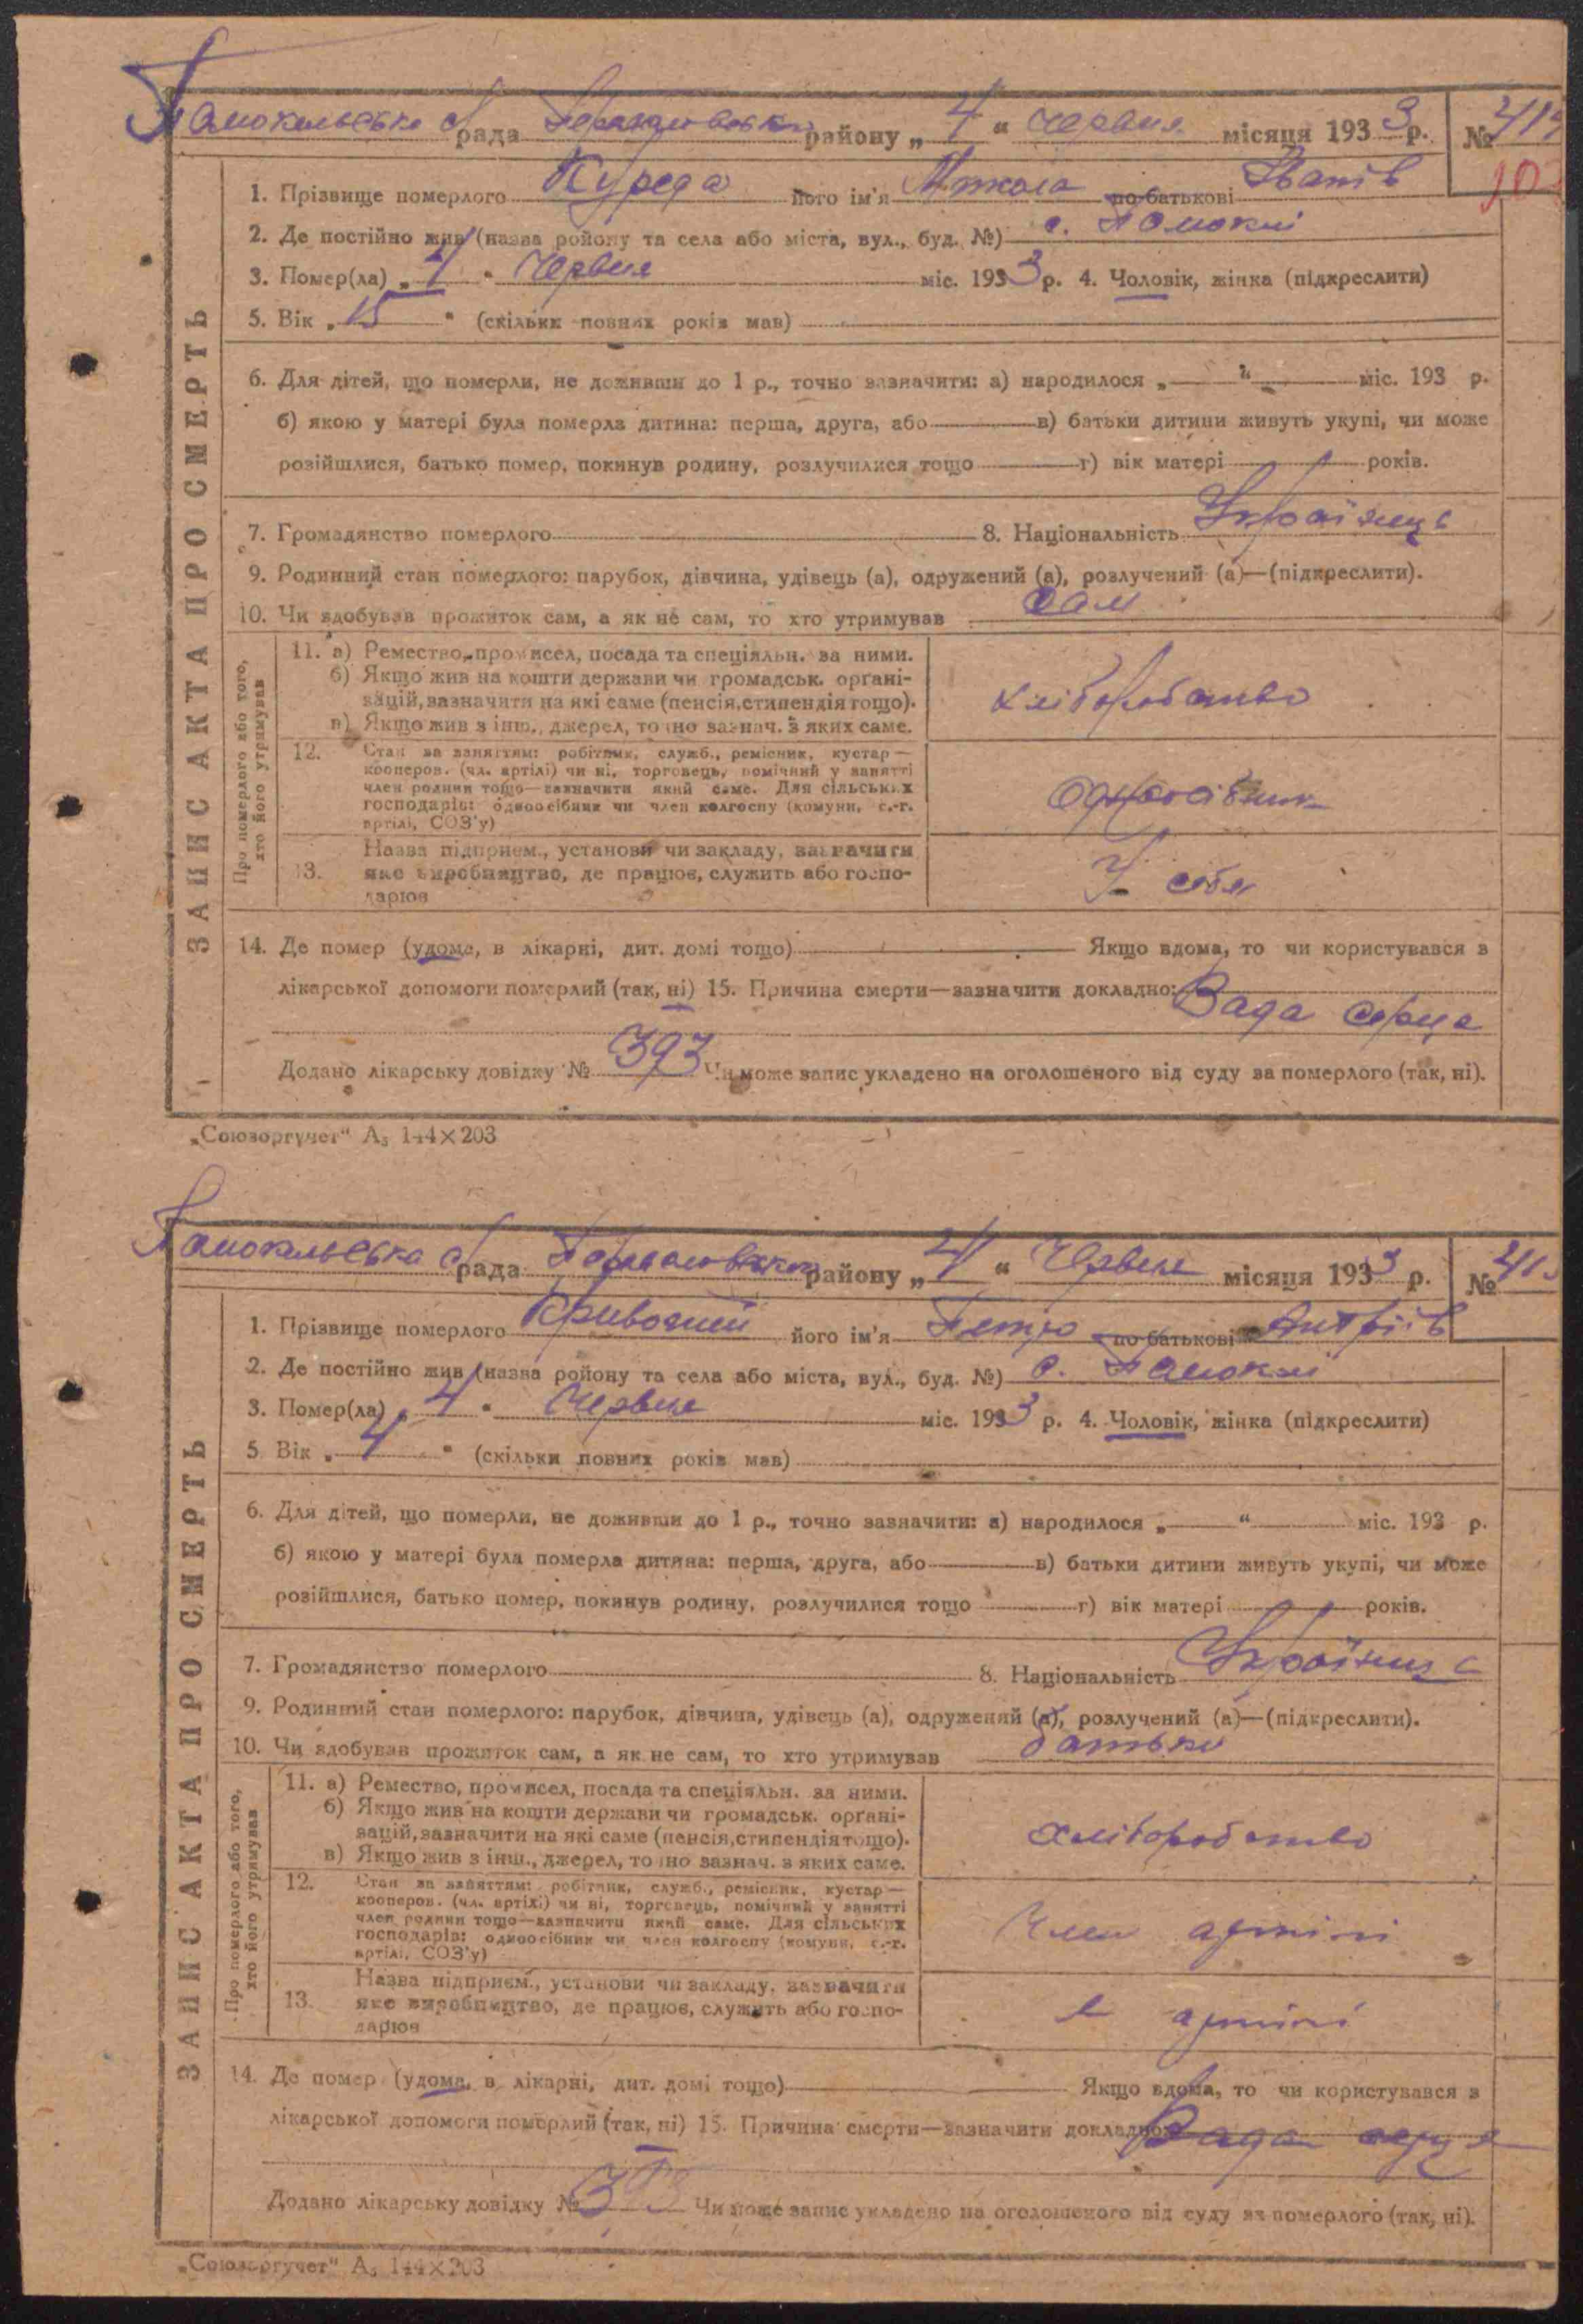 рада району „ 4 “ Червня місяця 1933 р. №
1. Прізвище померлого Куреда його ім'я Микола по-батькові Іванів
2. Де постійно жив (назва ройону та села або міста, вул., буд. №) с.
3. Помер(ла) „ 4 “ Червня міс. 1933 р. 4. Чоловік, жінка (підкреслити)
5. Вік „ 15 “ (скільки повних років мав)
6. Для дітей, що померли, не доживши до 1 р., точно зазначити: а) народилося „ “ міс. 193 р.
б) якою у матері була померла дитина: перша, друга, або в) батьки дитини живуть укупі, чи може
розійшлися, батько помер, покинув родину, розлучилися тощо г) вік матері років.
7. Громадянство померлого 8. Національність Українець
9. Родинний стан померлого: парубок, дівчина, удівець (а), одружений (а), розлучений (а)—(підкреслити).
10. Чи здобував прожиток сам, а як не сам, то хто утримував сам
ЗАПИС АКТА ПРО СМЕРТЬ
Про померлого або того,
хто його утримував
11. а) Ремество, промисел, посада та спеціяльн. за ними.
б) Якщо жив на кошти держави чи громадськ. органі-
зацій, зазначити на які саме (пенсія, стипендія тощо).
в) Якщо жив з інш., джерел, точно зазнач. з яких саме.
хліборобство
12. Стан за заняттям: робітник, служб., ремісник, кустар—
кооперов. (чл. артілі) чи ні, торговець, помічний у занятті
член родини тощо—зазначити який саме. Для сільських
господарів: одноосібник чи член колгоспу (комуни, с.-г.
артілі, СОЗ'у)
Одноосібник
13. Назва підприєм., установи чи закладу, зазначити
яке виробництво, де працює, служить або госпо-
дарює
У себе
14. Де помер (удома, в лікарні, дит. домі тощо) Якщо вдома, то чи користувався з
лікарської допомоги померлий (так, ні) 15. Причина смерти—зазначити докладно: Вада серця
Додано лікарську довідку № 393 Чи може запис укладено на оголошеного від суду за померлого (так, ні).
„Союзоргучет“ А₅ 144×203
рада району „ 4 “ Червня місяця 1933 р. №
1. Прізвище померлого його ім'я Петро по-батькові
2. Де постійно жив (назва ройону та села або міста, вул., буд. №) с.
3. Помер(ла) „ 4 “ Червня міс. 1933 р. 4. Чоловік, жінка (підкреслити)
5 Вік „ 4 “ (скільки повних років мав)
6. Для дітей, що померли, не доживши до 1 р., точно зазначити: а) народилося „ “ міс. 193 р.
б) якою у матері була померла дитина: перша, друга, або в) батьки дитини живуть укупі, чи може
розійшлися, батько помер, покинув родину, розлучилися тощо г) вік матері років.
7. Громадянство померлого 8. Національність Українець
9. Родинний стан померлого: парубок, дівчина, удівець (а), одружений (а), розлучений (а)—(підкреслити).
10. Чи здобував прожиток сам, а як не сам, то хто утримував батько
ЗАПИС АКТА ПРО СМЕРТЬ
Про померлого або того,
хто його утримував
11. а) Ремество, промисел, посада та спеціяльн. за ними.
б) Якщо жив на кошти держави чи громадськ. органі-
зацій, зазначити на які саме (пенсія, стипендія тощо).
в) Якщо жив з інш., джерел, точно зазнач. з яких саме.
хліборобство
12. Стан за заняттям: робітник, служб., ремісник, кустар—
кооперов. (чл. артілі) чи ні, торговець, помічний у занятті
член родини тощо—зазначити який саме. Для сільських
господарів: одноосібник чи член колгоспу (комуни, с.-г.
артілі, СОЗ'у)
Член артілі
13. Назва підприєм., установи чи закладу, зазначити
яке виробництво, де працює, служить або госпо-
дарює
в артілі
14. Де помер (удома, в лікарні, дит. домі тощо) Якщо вдома, то чи користувався з
лікарської допомоги померлий (так, ні) 15. Причина смерти—зазначити докладно: Вада серця
Додано лікарську довідку № Чи може запис укладено на оголошеного від суду за померлого (так, ні).
„Союзоргучет“ А₅ 144×203